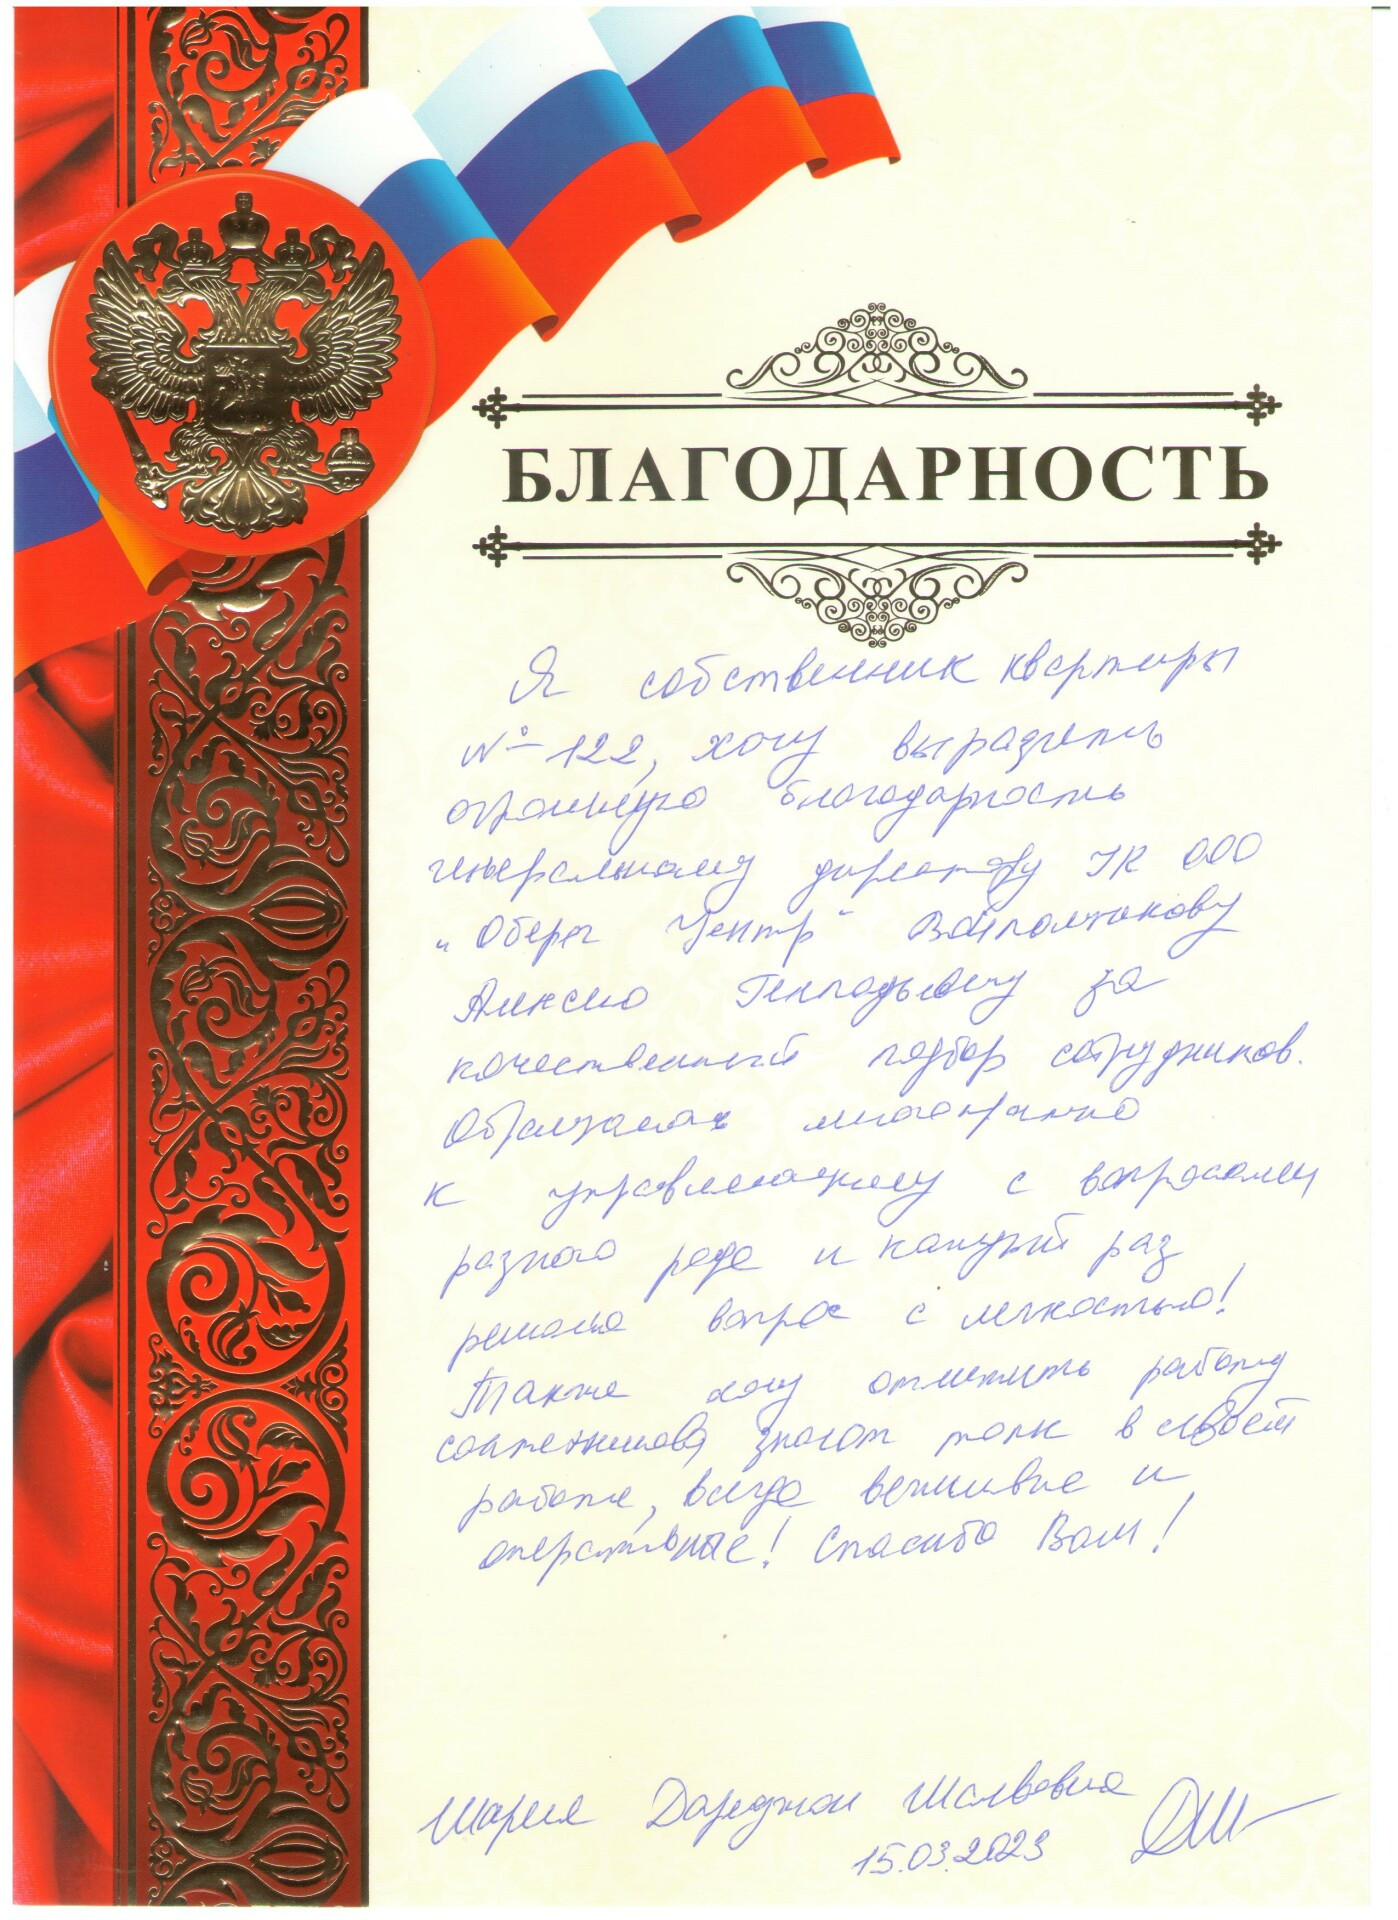 БЛАГОДАРНОСТЬ
Я собственник квартиры
№ 122, хочу выразить
огромную благодарность
генеральному директору УК ООО
„Оберег Центр“
Алексею Геннадьевичу за
качественный подбор сотрудников.
Обращалась многократно
к управляющему с вопросами
разного рода и каждый раз
решала вопрос с легкостью!
Также хочу отметить работу
сантехников, знают толк в своей
работе, всегда вежливые и
оперативные! Спасибо Вам!
Дареджан Шалвовна
15.03.2023